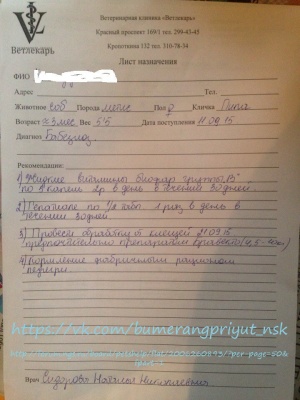 Ветеринарная клиника «Ветлекарь»
Красный проспект 169/1 тел. 299-43-45
Кропоткина 132 тел. 310-78-34
Ветлекарь
Лист назначения
ФИО
Адрес Тел.
Животное соб. Порода метис Пол Кличка
Возраст ≈3 мес Вес 5'5 Дата поступления 11.09.15
Диагноз Бабезиоз.
Рекомендации:
1) Жидкие витамины
по капли 2р в день в течении 30 дней.
2) по 1/2 табл 1 раз в день в
течении 30 дней
3) Провести обработку от клещей 21.09.15
предпочтительно
4) Кормление фабричным рационом
https://vk.com/bumerangpriyut_nsk
Врач Сидорова Наталья Николаевна